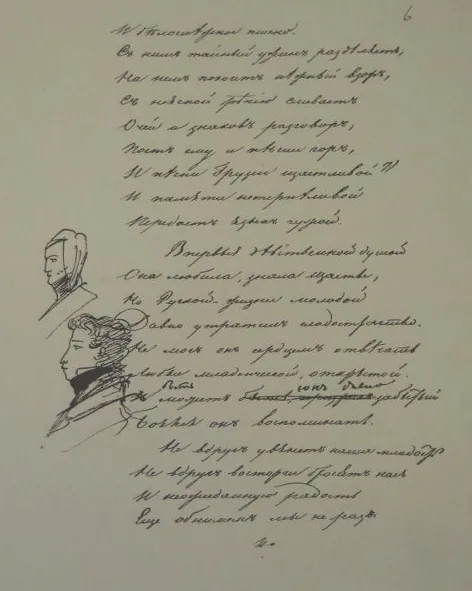 6
И бѣлоснѣжное пшено.
Съ нимъ тайный ужинъ раздѣляетъ,
На немъ покоитъ нѣжный взоръ,
Съ неясной рѣчію сливаетъ
Очей и знаковъ разговоръ,
Поетъ ему и пѣсни горъ,
И пѣсни Грузіи щастливой
И памяти нетерпѣливой
Передаетъ языкъ чужой.
Впервые дѣвственной душой
Она любила, знала щастье,
Но Руской жизни молодой
Давно утратилъ сладострастье.
Не могъ онъ сердцемъ отвѣчать
Любви младенческой, открытой.
Быть сонъ любви
можетъ забытой
Боялся онъ воспоминать.
Не вдругъ увянетъ наша младость
Не вдругъ восторги бросятъ насъ
И неожиданную радость
Еще обнимемъ мы не разъ.